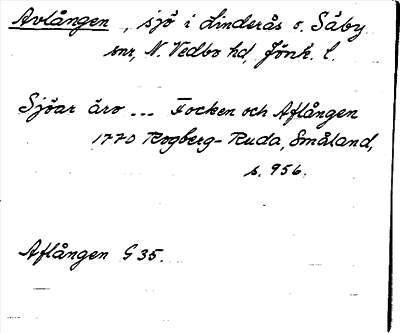 Avlången, sjö i Linderås o. Säby
snr, N. Vedbo hd, Jönk. l.
Sjöar äro ... Focken och Aflången
1770 Rogberg-Ruda, Småland,
s. 956.
Aflången G 35.